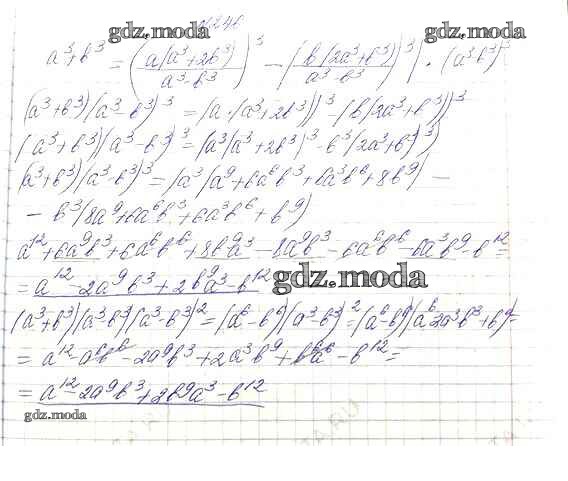 gdz.moda
gdz.moda
a³+b³ = (a(a³+2b³)/a³-b³)³ - (b(2a³+b³)/a³-b³)³ | · (a³-b³)³
(a³+b³)(a³-b³)³ = (a·(a³+2b³))³ - (b(2a³+b³))³
(a³+b³)(a³-b³)³ = (a³(a³+2b³)³ - b³(2a³+b³)³)
(a³+b³)(a³-b³)³ = (a³(a⁹+6a⁶b³+6a³b⁶+8b⁹) -
- b³(8a⁹+6a⁶b³+6a³b⁶+b⁹)
a¹²+6a⁹b³+6a⁶b⁶+8b⁹a³-8a⁹b³-6a⁶b⁶-6a³b⁹-b¹² =
= a¹²-2a⁹b³+2b⁹a³-b¹²
gdz.moda
(a³+b³)(a³-b³)(a³-b³)² = (a⁶-b⁶)(a³-b³)² = (a⁶-b⁶)(a⁶-2a³b³+b⁶) =
= a¹²-a⁶b⁶-2a⁹b³+2a³b⁹+b⁶a⁶-b¹² =
= a¹²-2a⁹b³+2b⁹a³-b¹²
gdz.moda